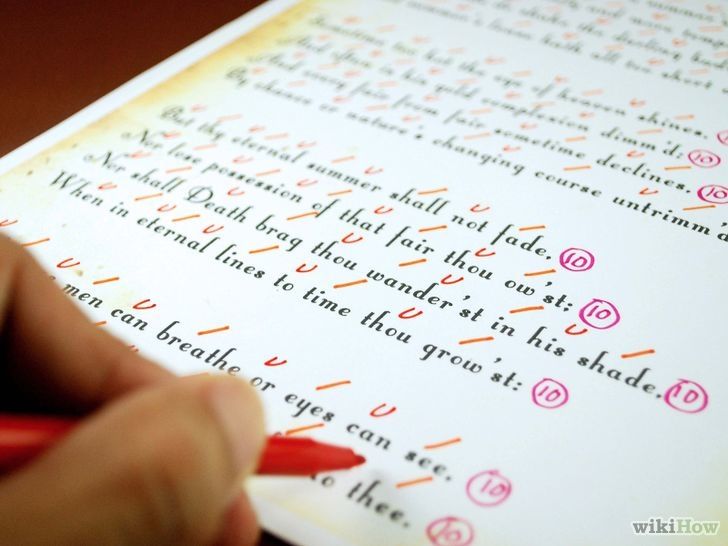 do shake the darling bud
summer's lease hath all too short
Sometime too hot the eye of heaven shines,
And often is his gold complexion dimm'd; 10
And every fair from fair sometime declines, 10
By chance or nature's changing course untrimm'd
But thy eternal summer shall not fade, 10
Nor lose possession of that fair thou ow'st; 10
Nor shall Death brag thou wander'st in his shade, 10
When in eternal lines to time thou grow'st: 10
men can breathe or eyes can see, 10
to thee. 10
wikiHow